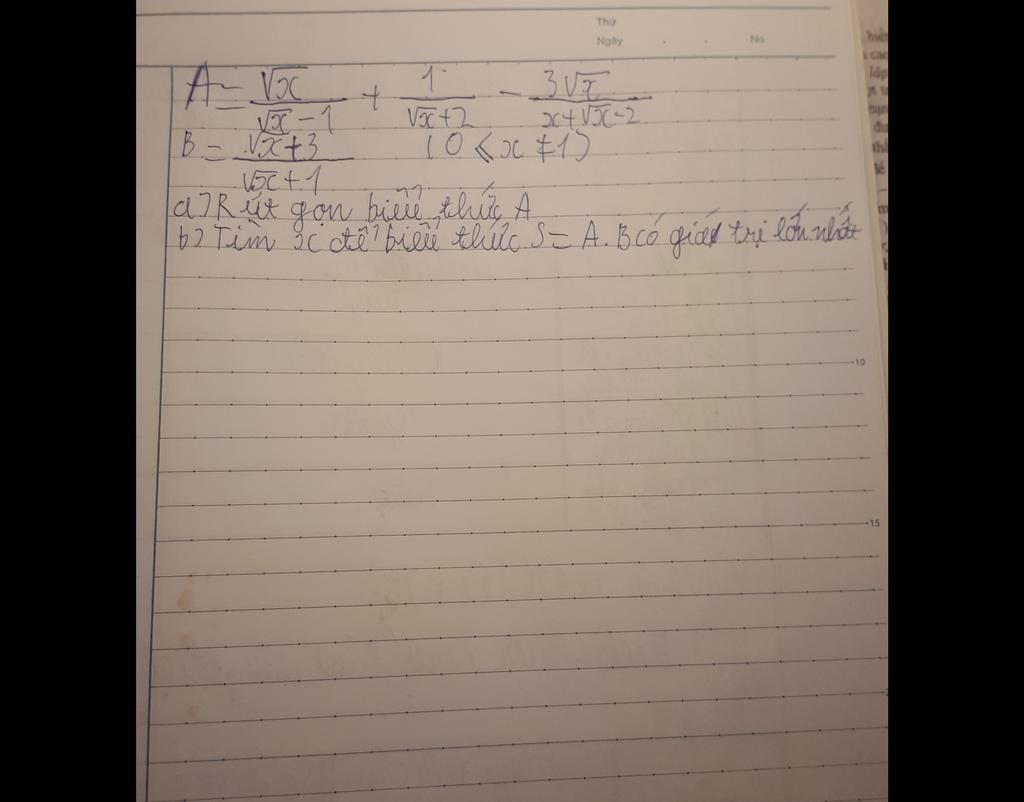 Thứ
Ngày . . No.
A = √x/(√x - 1) + 1/(√x + 2) - 3√x/(x + √x - 2)
B = (√x + 3)/(√x + 1) (0 ≤ x ≠ 1)
a) Rút gọn biểu thức A
b) Tìm x để biểu thức S = A.B có giá trị lớn nhất
10
15